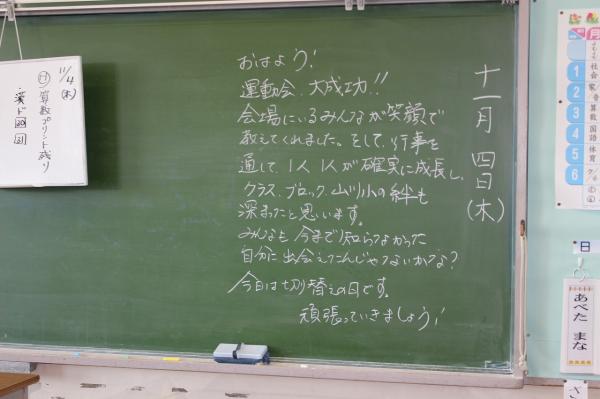 十一月四日(木)
おはよう!
運動会、大成功!!
会場にいるみんなが笑顔で
教えてくれました。そして、行事を
通して、1人1人が確実に成長し、
クラス、ブロック、山川小の絆も
深まったと思います。
みんなも今まで知らなかった
自分に出会えたんじゃないかな?
今日は切り替えの日です。
頑張っていきましょう!
11/4(木)
算数プリント残り
・漢ド 20 21
月
1 社会
2 家
3 算数
4 国語
5 体育
6
日
あべた まな